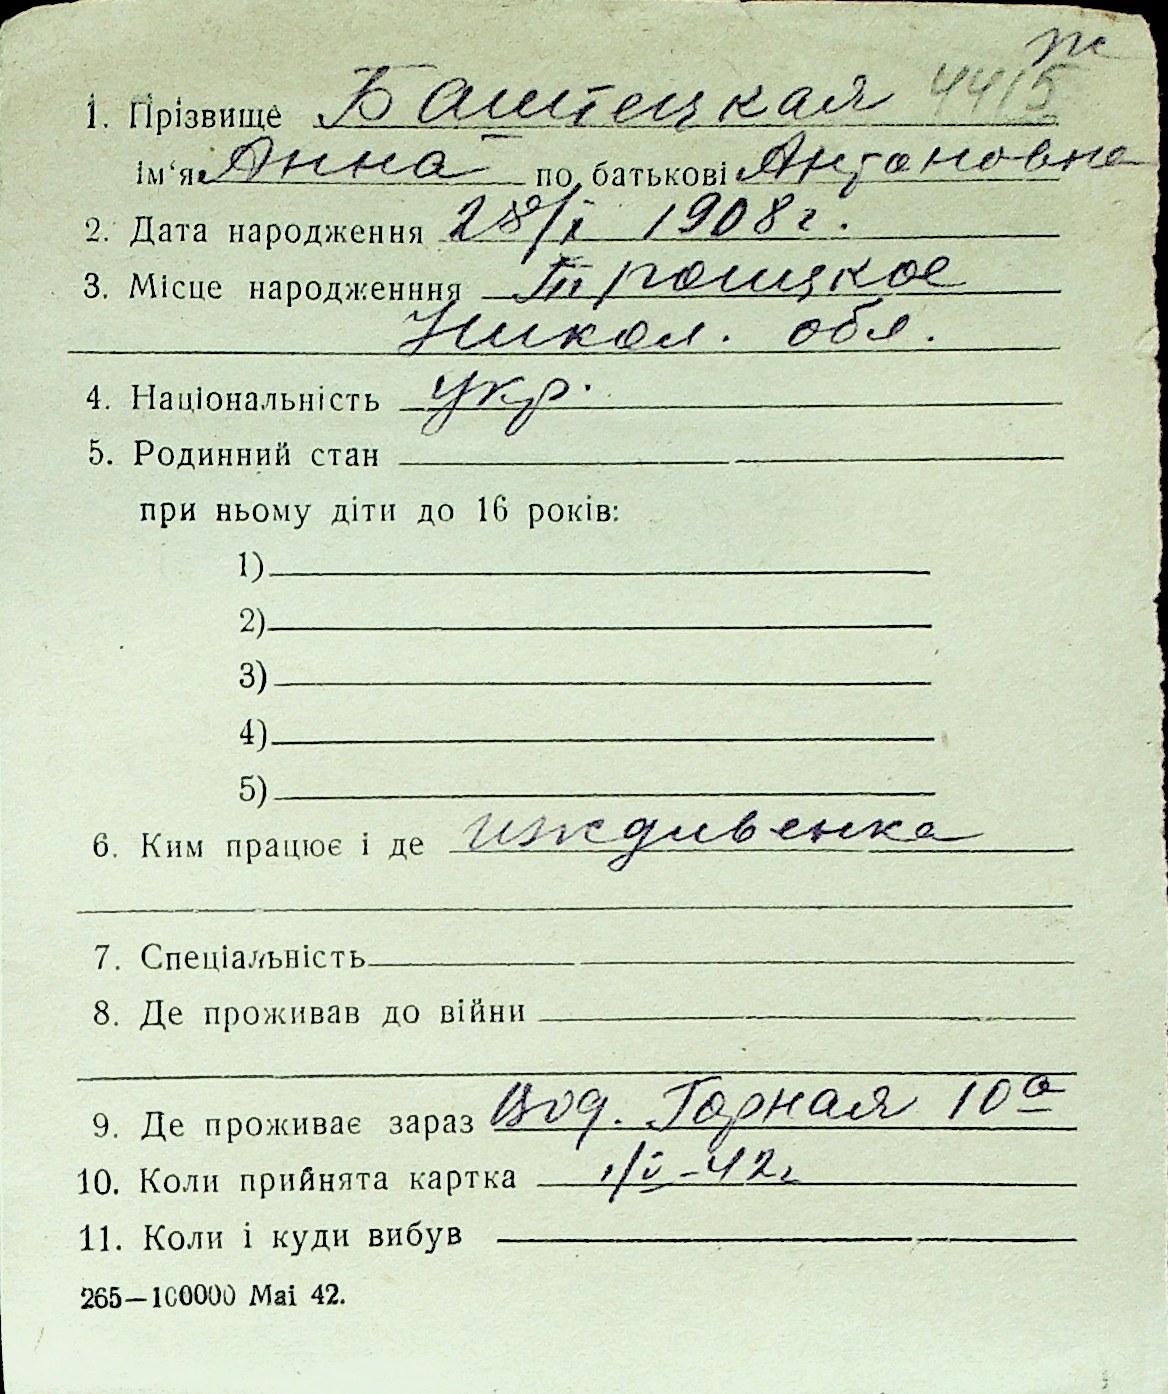 ж
1. Прізвище Баштецкая 4415
ім'я Анна по батькові Антоновна
2. Дата народження 28/I 1908 г.
3. Місце народженння Троицкое
Никол. обл.
4. Національність укр.
5. Родинний стан
при ньому діти до 16 років:
1)
2)
3)
4)
5)
6. Ким працює і де иждивенка
7. Спеціальність
8. Де проживав до війни
9. Де проживає зараз Вод. Горная 10а
10. Коли прийнята картка -42г
11. Коли і куди вибув
265—100000 Mai 42.